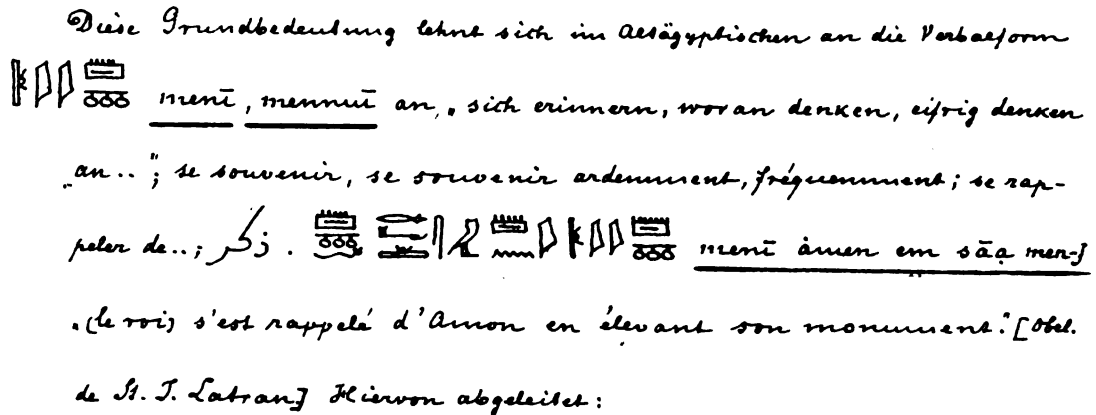 Diese Grundbedeutung lehnt sich im Altägyptischen an die Verbalform
menī, mennuī an, „sich erinnern, woran denken, eifrig denken
„an.."; se souvenir, se souvenir ardemment, fréquemment; se rap-
peler de..; ذكر. menī àmen em sāa men-f
„(le roi) s'est rappelé d'Amon en élevant son monument." [Obel.
de St. J. Latran] Hiervon abgeleitet: